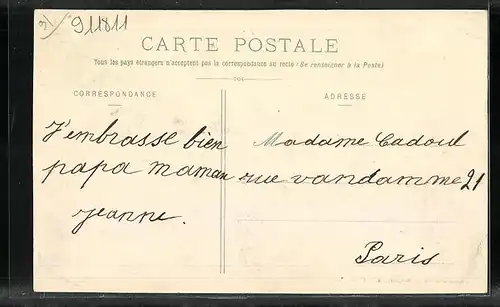 9/ 911811
CARTE POSTALE
Tous les pays étrangers n'acceptent pas la correspondance au recto (Se renseigner à la Poste)
CORRESPONDANCE
ADRESSE
J'embrasse bien
papa maman
Jeanne.
Madame Cadoul
rue vandamme 21
Paris